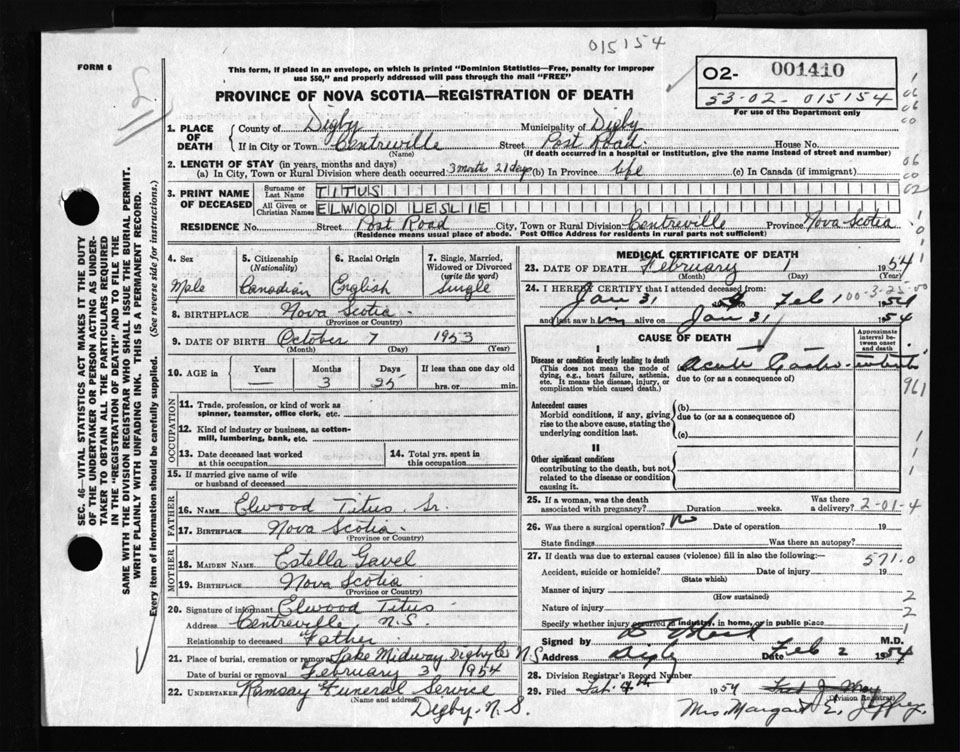 015154
FORM 6
This form, if placed in an envelope, on which is printed "Dominion Statistics—Free, penalty for improper
use $50," and properly addressed will pass through the mail "FREE"
O2- 001410
53-02-015154
For use of the Department only
PROVINCE OF NOVA SCOTIA—REGISTRATION OF DEATH
1. PLACE OF DEATH { County of Digby Municipality of Digby
If in City or Town Centreville Street Post Road House No.
(Name) (If death occurred in a hospital or institution, give the name instead of street and number)
2. LENGTH OF STAY (in years, months and days)
(a) In City, Town or Rural Division where death occurred 3 months 21 days (b) In Province life (c) In Canada (if immigrant)
3. PRINT NAME OF DECEASED { Surname or Last Name TITUS
All Given or Christian Names ELWOOD LESLIE
RESIDENCE No. Street Post Road City, Town or Rural Division Centreville Province Nova Scotia
(Residence means usual place of abode. Post Office Address for residents in rural parts not sufficient)
4. Sex Male
5. Citizenship (Nationality) Canadian
6. Racial Origin English
7. Single, Married, Widowed or Divorced (write the word) Single
8. BIRTHPLACE Nova Scotia
(Province or Country)
9. DATE OF BIRTH October 7 1953
(Month) (Day) (Year)
10. AGE in { Years — Months 3 Days 25 If less than one day old hrs. or min.
OCCUPATION
11. Trade, profession, or kind of work as
spinner, teamster, office clerk, etc.
12. Kind of industry or business, as cotton-
mill, lumbering, bank, etc.
13. Date deceased last worked
at this occupation
14. Total yrs. spent in
this occupation
15. If married give name of wife
or husband of deceased
FATHER
16. NAME Elwood Titus Sr.
17. BIRTHPLACE Nova Scotia
(Province or Country)
MOTHER
18. MAIDEN NAME Estella Gavel
19. BIRTHPLACE Nova Scotia
(Province or Country)
20. Signature of informant Elwood Titus
Address Centreville N.S.
Relationship to deceased Father
21. Place of burial, cremation or removal Lake Midway Digby Co N.S.
Date of burial or removal February 3 1954
22. UNDERTAKER Ramsay Funeral Service
(Name and address)
Digby, N.S.
MEDICAL CERTIFICATE OF DEATH
23. DATE OF DEATH February 1 1954
(Month) (Day) (Year)
24. I HEREBY CERTIFY that I attended deceased from:
Jan 31 Feb 1 1954
00-3-25-00
and last saw him alive on Jan 31 1954
CAUSE OF DEATH
Approximate interval between onset and death
I
Disease or condition directly leading to death
(This does not mean the mode of
dying, e.g., heart failure, asthenia,
etc. It means the disease, injury, or
complication which caused death.)
Acute Gastro-
due to (or as a consequence of)
961
Antecedent causes
Morbid conditions, if any, giving
rise to the above cause, stating the
underlying condition last.
(b)
due to (or as a consequence of)
(c)
II
Other significant conditions
contributing to the death, but not
related to the disease or condition
causing it.
25. If a woman, was the death
associated with pregnancy? Duration weeks. Was there a delivery? 2-01-4
26. Was there a surgical operation? no Date of operation 19
State findings Was there an autopsy?
27. If death was due to external causes (violence) fill in also the following:— 571.0
Accident, suicide or homicide? Date of injury 19
(State which)
Manner of injury 2
(How sustained)
Nature of injury 2
Specify whether injury occurred in industry, in home, or in public place 1
Signed by M.D.
Address Digby Date Feb 2 1954
28. Division Registrar's Record Number
29. Filed Feb. 4th 1954
Division Registrar
Mrs. Margaret E. Jeffrey
SEC. 46—VITAL STATISTICS ACT MAKES IT THE DUTY
OF THE UNDERTAKER OR PERSON ACTING AS UNDER-
TAKER TO OBTAIN ALL THE PARTICULARS REQUIRED
IN THE "REGISTRATION OF DEATH" AND TO FILE THE
SAME WITH THE DIVISION REGISTRAR WHO SHALL ISSUE THE BURIAL PERMIT.
WRITE PLAINLY WITH UNFADING INK. THIS IS A PERMANENT RECORD.
Every item of information should be carefully supplied. (See reverse side for instructions.)